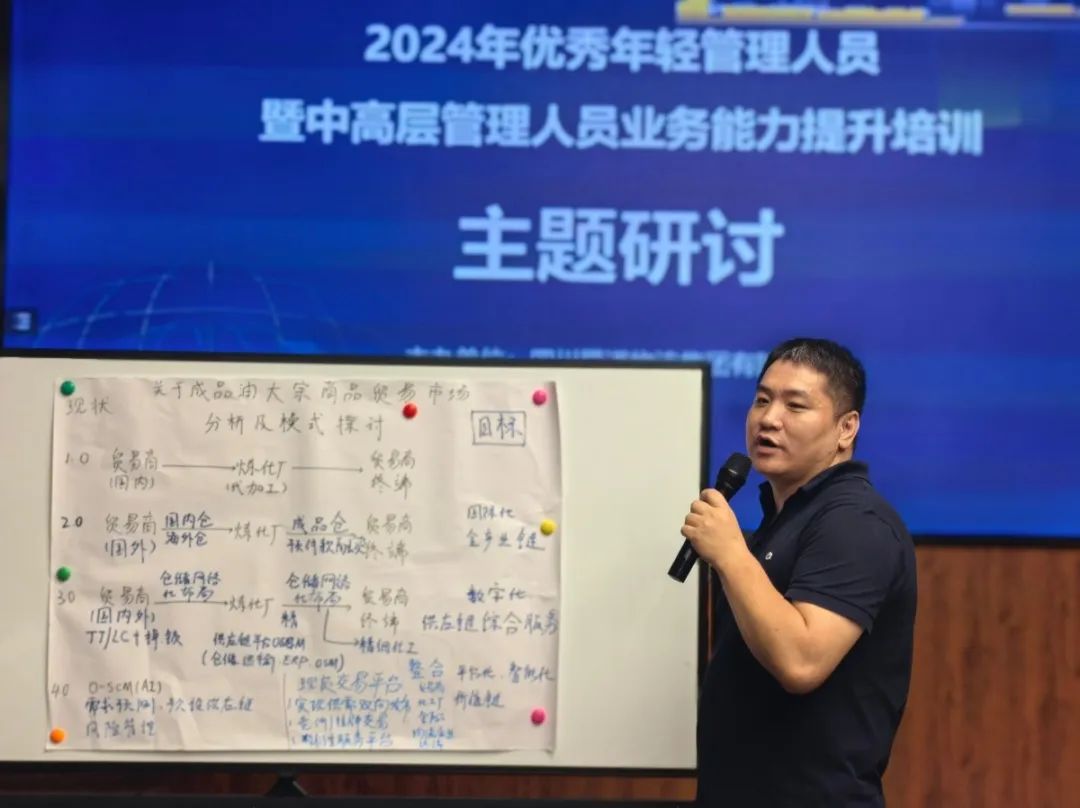 2024年优秀年轻管理人员
暨中高层管理人员业务能力提升培训
主题研讨
关于成品油大宗商品贸易市场
现状
分析及模式探讨
目标
1.0 贸易商 炼化厂 贸易商
(国内) (代加工) 终端
2.0 贸易商 国内仓 炼化厂 成品仓 贸易商 国际化
(国外) 海外仓 终端 全产业链
3.0 贸易商 仓储网络 炼化厂 仓储网络 贸易商 数字化
(国内外) 化布局 精 化布局 终端 供应链综合服务
TT/LC+ 供应链平台 精细化工
(仓储 运输 ERP.OSM)
整合 平台化、智能化
4.0 O-SCM(AI) 现货交易平台 贸易商 价值链
供应链 实现供需双向 化工厂
风险管理 服务平台